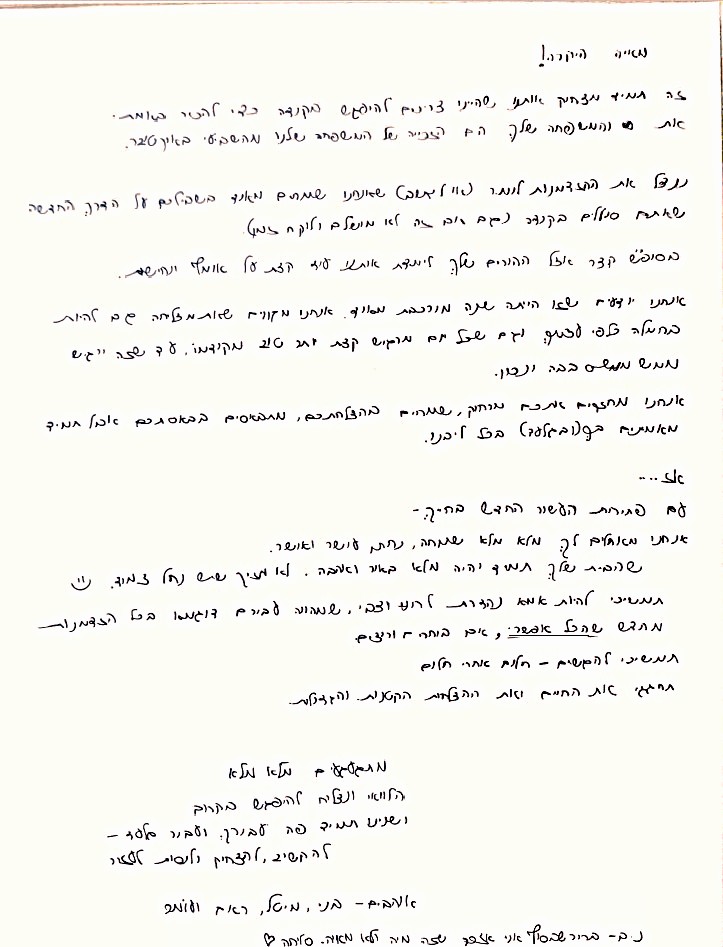 מאייה היקרה!
זה תמיד מצחיק אותנו שהיינו צריכים להיפגש בקנדה כדי להכיר באמת.
את והמשפחה שלך הם הזכייה של המשפחה שלנו מהשביעי באוקטובר.
ננצל את ההזדמנות לומר (או לכתוב) שאנחנו שמחים מאוד בשבילכם על הדרך החדשה
שאתם סוללים בקנדה (גם אם זה לא מושלם ולוקח זמן).
בסופ״ש קצר אצל ההורים שלך לימדת אותנו עוד קצת על אומץ ונחישות.
אנחנו יודעים שזו הייתה שנה מורכבת מאוד. אנחנו מקווים שאת מצליחה גם להיות
בחמלה כלפי עצמך, וגם שכל יום מרגיש קצת יותר טוב מקודמו, עד שזה ירגיש
ממש ממש בבה ונכון.
אנחנו מחזקים אתכם מרחוק, שמחים בהצלחתכם, מתבאסים בבאסתכם אבל תמיד
מאמינים בך (ובגלעד) בכל ליבנו.
אז....
עם פתיחת העשור החדש בחייך -
אנחנו מאחלים לך מלא מלא שמחה, נחת, עושר ואושר.
שהבית שלך תמיד יהיה מלא באור ואהבה. לא מזיק שיש נחל צמוד. ☺
תמשיכי להיות אמא נהדרת לרוני וצבי, שמהווה עבורם דוגמא בכל הזדמנות
מחדש שהכל אפשרי, אם בוחרים ורוצים
תמשיכי להגשים – חלום אחרי חלום
תחגגי את החיים ואת ההצלחות הקטנות והגדולות.
מתגעגעים מלא מלא
הלוואי ונצליח להיפגש בקרוב
ושנינו תמיד פה עבורך, ועבור גלעד –
להקשיב, להצחיק ולנסות לעזור
אוהבים – בני, מיטל,
נ.ב – ברור שבסוף אני אזכור שזה מיה ולא מאיה. סליחה ♡